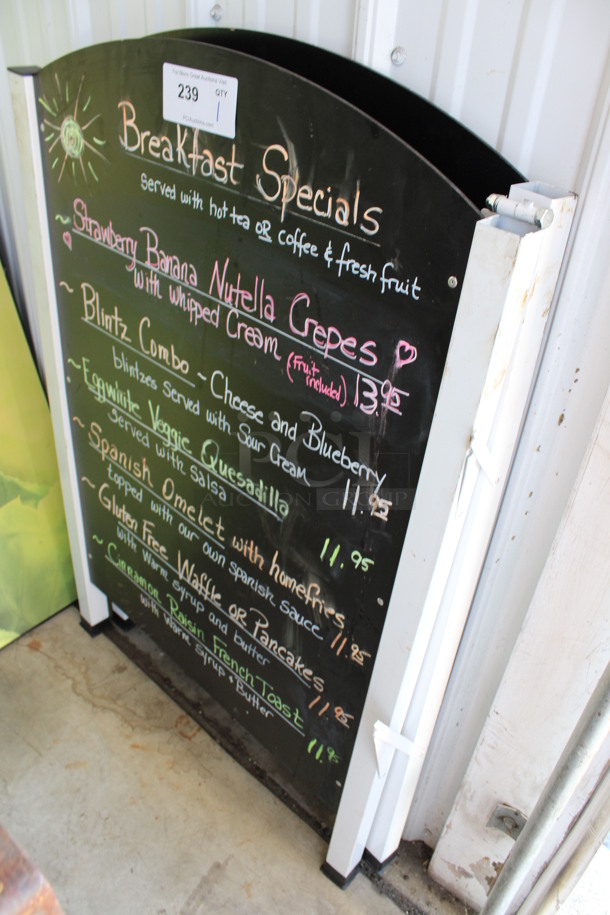 239
QTY
1
Breakfast Specials
served with hot tea OR coffee & fresh fruit
~ Strawberry Banana Nutella Crepes
with whipped Cream (Fruit included) 13.95
~ Blintz Combo ~ Cheese and Blueberry
blintzes served with Sour Cream 11.95
~ Eggwhite Veggie Quesadilla
served with salsa 11.95
~ Spanish Omelet with homefries
topped with our own spanish sauce 11.95
~ Gluten Free Waffle OR Pancakes
with warm syrup and butter 11.95
~ Cinnamon Raisin French Toast
with warm syrup & Butter 11.95
PCI
AUCTION GROUP